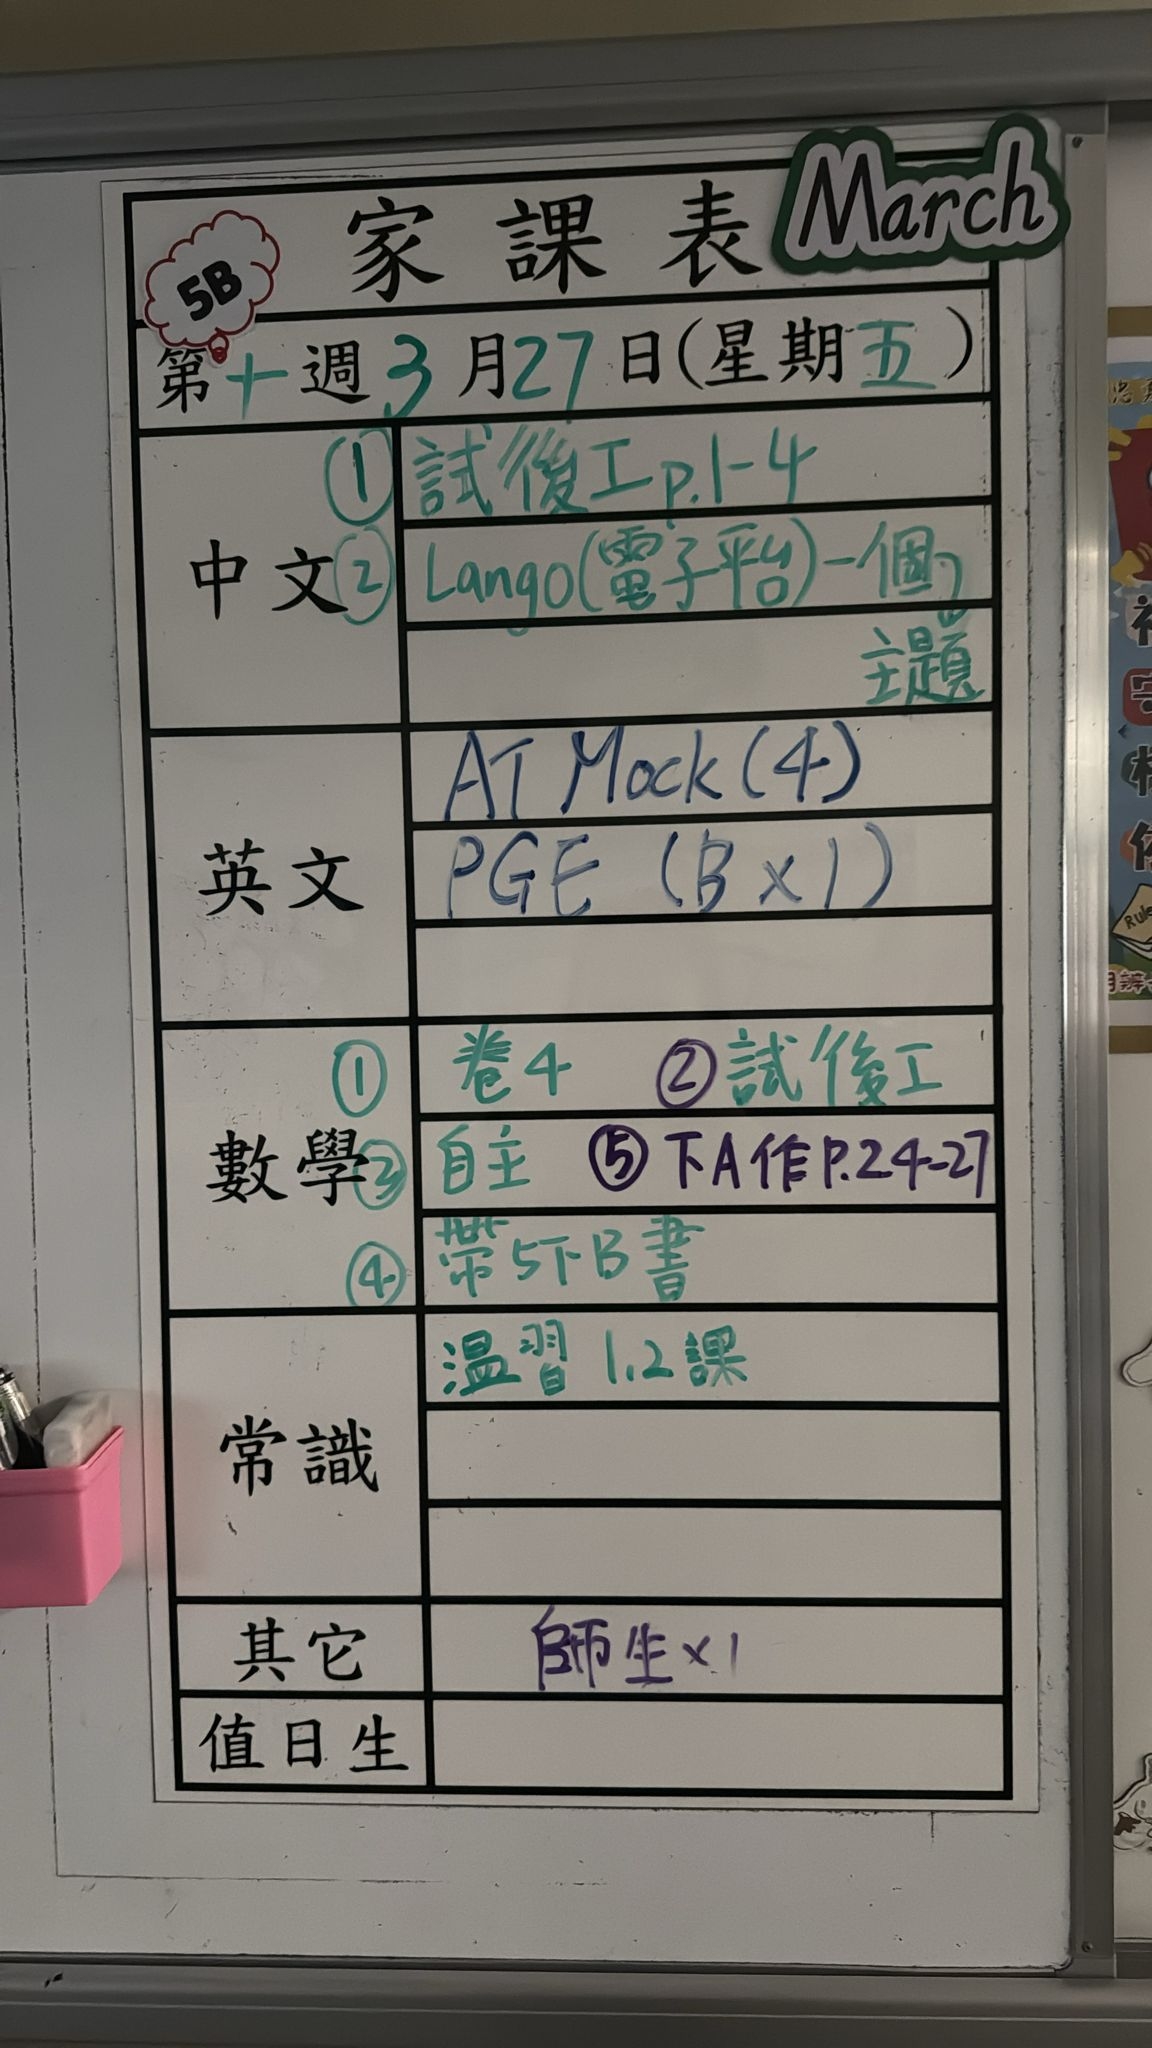 家課表
March
5B
第十週3月27日(星期五)
中文
①試後工p.1-4
②Lango(電子平台)-一個
主題
英文
AT Mock(4)
PGE (B×1)
數學
① 卷4 ②試後工
③自主 ⑤下A作P.24-27
④帶5下B書
常識
溫習 1,2課
其它
師生×1
值日生
Rule